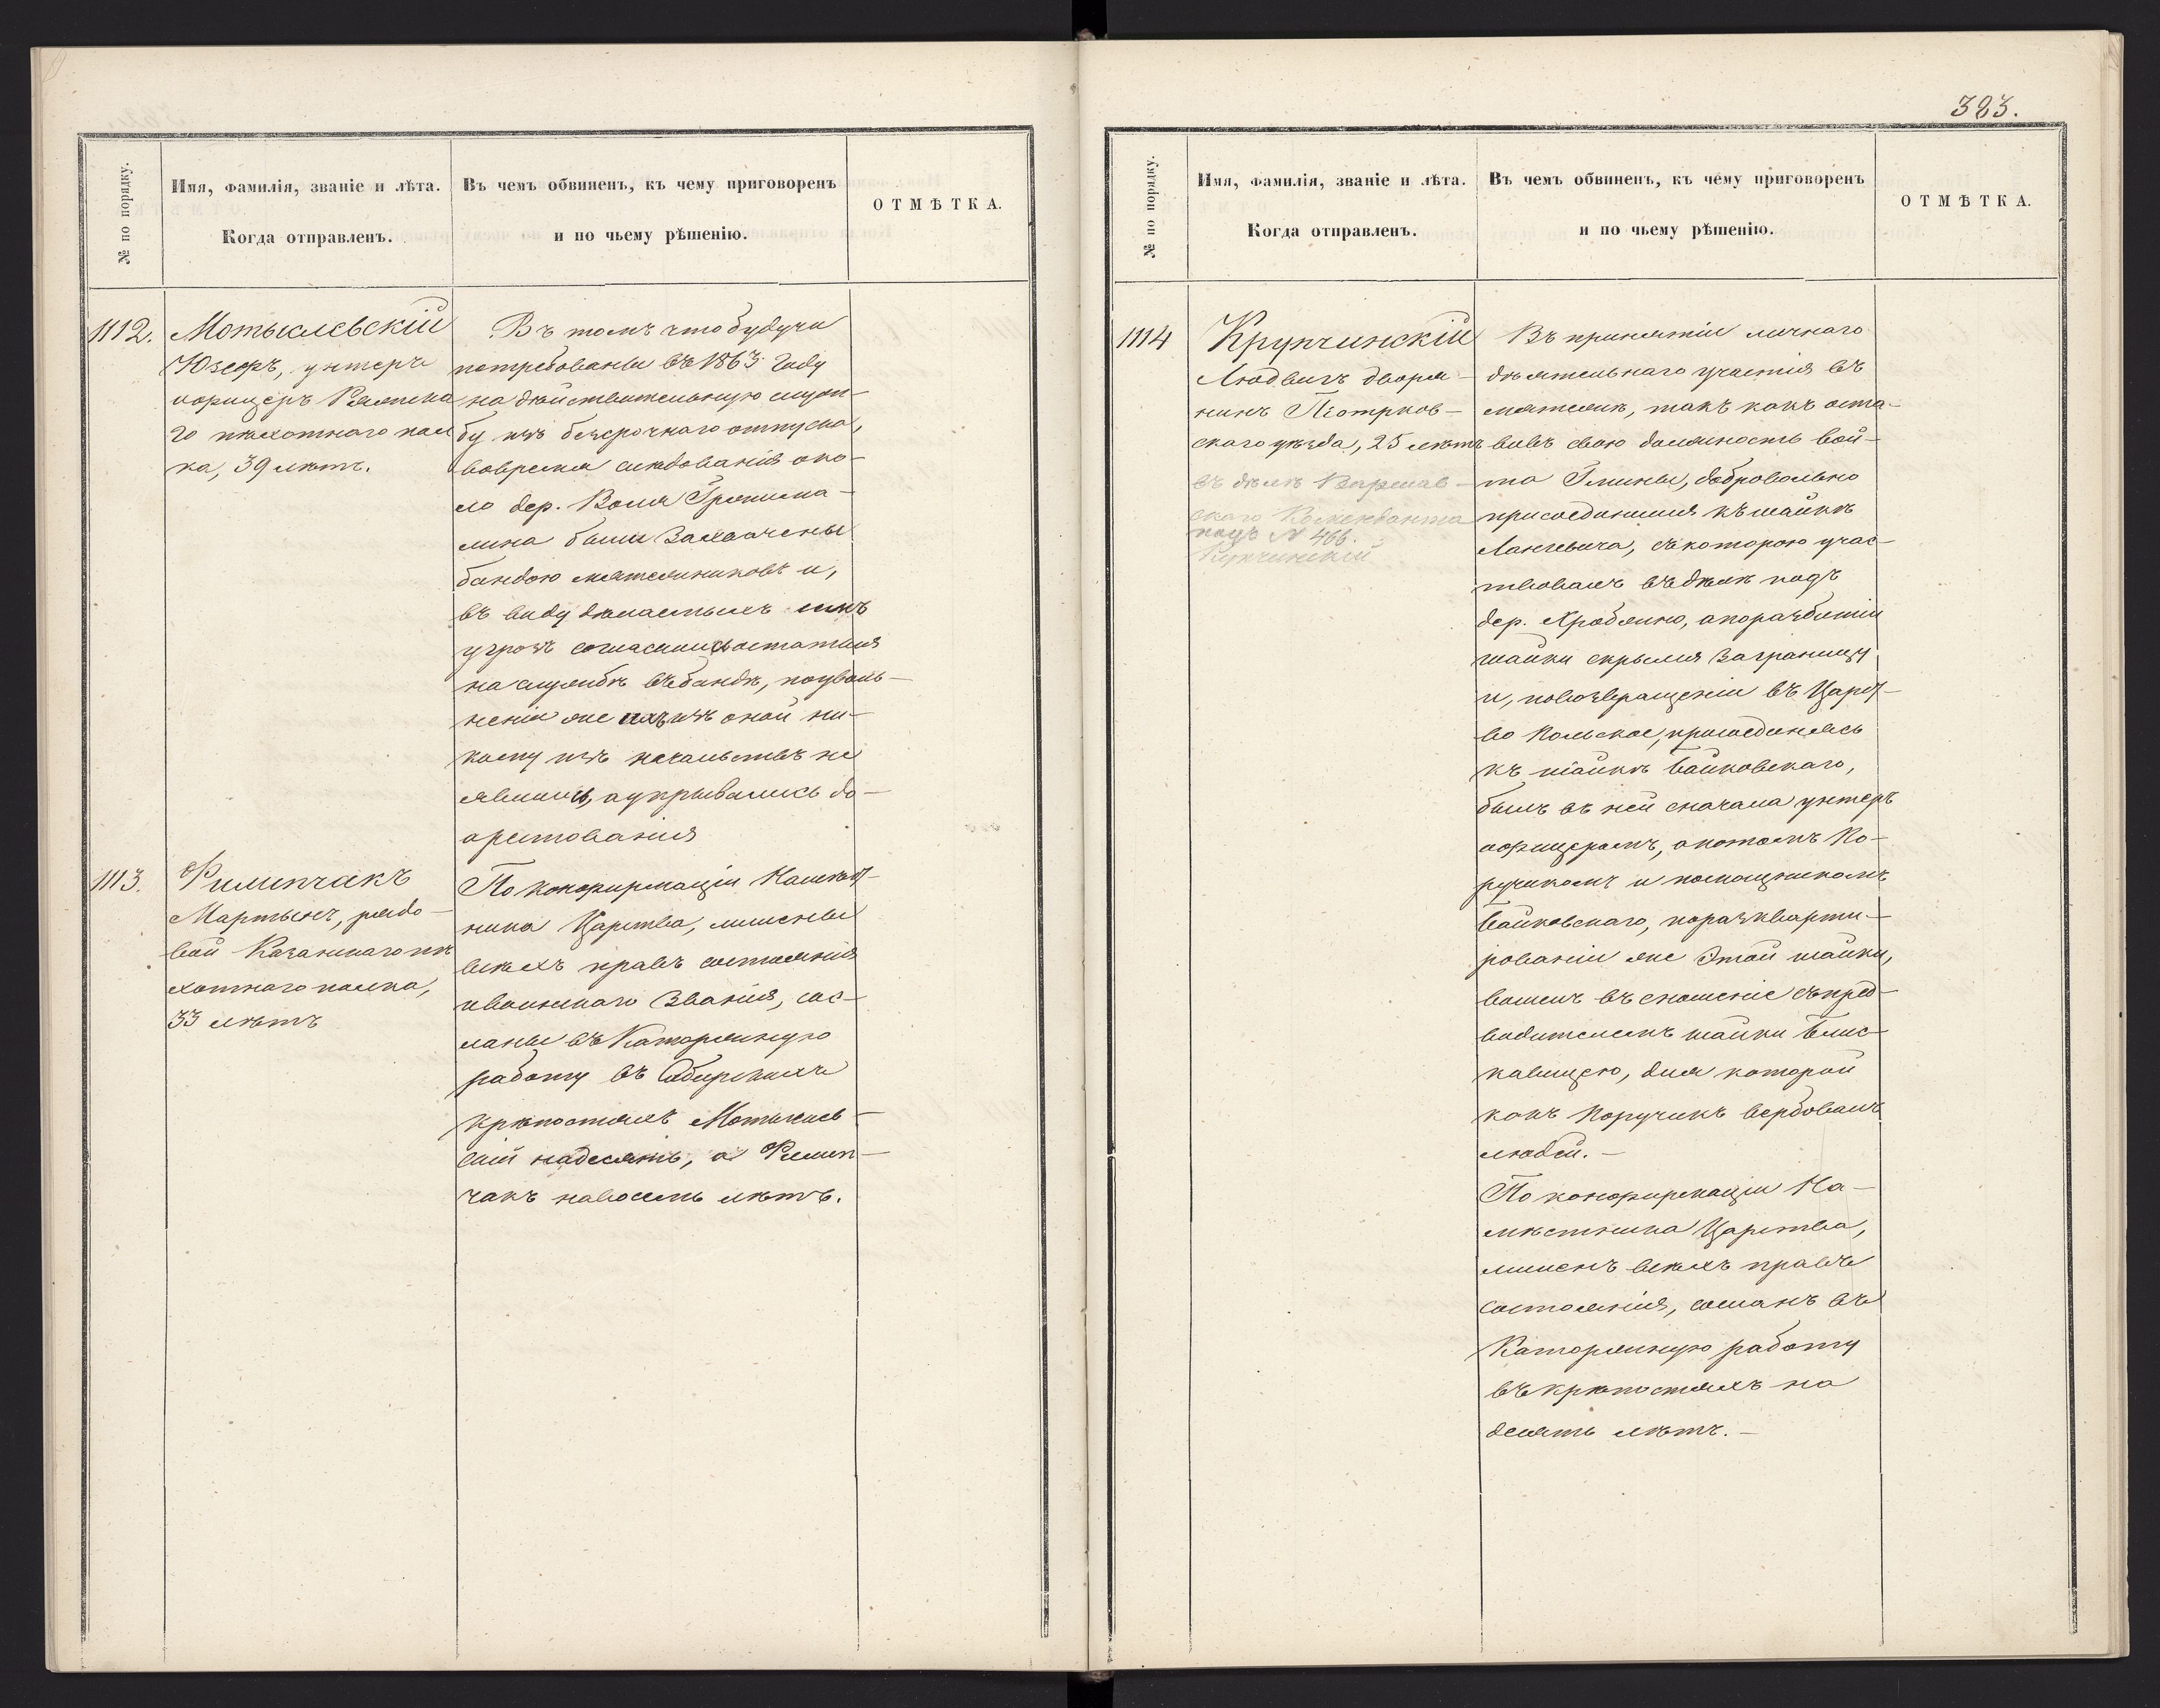 № по порядку.
Имя, Фамилія, званіе и лѣта.
Когда отправленъ.
Въ чемъ обвиненъ, къ чему приговоренъ
и по чьему рѣшенію.
ОТМѢТКА.
1112.
Мотылевскій
Юзефъ, унтеръ
офицеръ Ряжска
го пѣхотнаго пол
ка, 39 лѣтъ.
Въ томъ что будучи
потребованы въ 1863 году
на дѣйствительную служ-
бу изъ безсрочнаго отпуска,
вовремя слѣдованія око-
ло дер. Воля
были захвачены
бандою мятежниковъ и,
въ виду дѣлаемыхъ имъ
угрозъ согласились остаться
на службѣ въ бандѣ, по уволь-
неніи же ихъ изъ оной ни-
кому изъ начальствъ не
явились, а укрывались до
арестованія
1113.
Филипчакъ
Мартынъ, рядо-
вой Казанскаго пѣ
хотнаго полка,
33 лѣтъ
По конфирмаціи Намѣст-
ника Царства, лишены
всѣхъ правъ состоянія
и воинскаго званія, сос-
ланы въ Каторжную
работу въ Сибирскихъ
крѣпостяхъ Мотылев-
скій на десять, а Филип-
чакъ на восемь лѣтъ.
383.
№ по порядку.
Имя, Фамилія, званіе и лѣта.
Когда отправленъ.
Въ чемъ обвиненъ, къ чему приговоренъ
и по чьему рѣшенію.
ОТМѢТКА.
1114
Крупчинскій
Людвигъ дворя-
нинъ Піотрков-
скаго уѣзда, 25 лѣтъ
въ дѣлѣ Варшав-
скаго Коменданта
подъ № 466.
Купчинскій
Въ принятіи личнаго
дѣятельнаго участія въ
мятежѣ, такъ какъ оста-
вивъ свою должность вой-
та Гмины, добровольно
присоединился къ шайкѣ
Лангевича, съ которою учас-
твовалъ въ дѣлѣ подъ
дер. Хробжино, а по разбитіи
шайки скрылся заграницу
и, по возвращеніи въ Царст-
во Польское, присоединясь
къ шайкѣ Бонковскаго,
былъ въ ней сначала унтеръ
офицеромъ, а потомъ По-
ручикомъ и помощникомъ
Бонковскаго, по расквартн-
рованіи же этой шайки,
вошелъ въ сношеніе съ пред-
водителемъ шайки
для которой
какъ Поручикъ вербовалъ
людей.-
По конфирмаціи На-
мѣстника Царства,
лишенъ всѣхъ правъ
состоянія, сосланъ въ
Каторжную работу
въ крѣпостяхъ на
десять лѣтъ.-